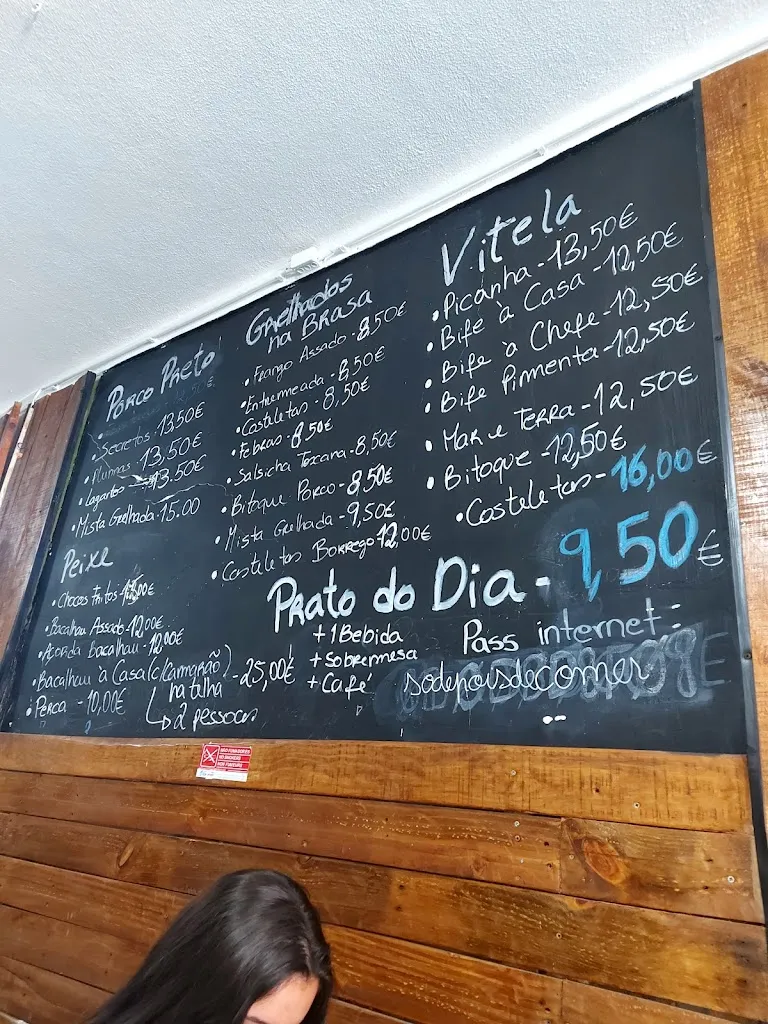 Porco Preto
• Secretos - 13,50€
• Plumas - 13,50€
• Lagartos - 13.50€
• Mista Grelhada - 15.00
Peixe
• Chocos Fritos -
• Bacalhau Assado - 12,00€
• Açorda bacalhau - 12,00€
• Bacalhau à Casa (c/camarão)
na telha - 25,00€
↳ 2 pessoas
• Perca - 10,00€
Grelhados
na Brasa
• Frango Assado - 8,50€
• Entremeada - 8,50€
• Costeletas - 8,50€
• Febras - 8,50€
• Salsicha Toscana - 8,50€
• Bitoque Porco - 8,50€
• Mista Grelhada - 9,50€
• Costeletas Borrego 12,00€
Vitela
• Picanha - 13,50€
• Bife à Casa - 12,50€
• Bife à Chefe - 12,50€
• Bife Pimmenta - 12,50€
• Mar e Terra - 12,50€
• Bitoque - 12,50€
• Costeletas - 16,00€
Prato do Dia - 9,50€
+ 1 Bebida
+ Sobremesa
+ Café
Pass internet:
sodepoisdecomer